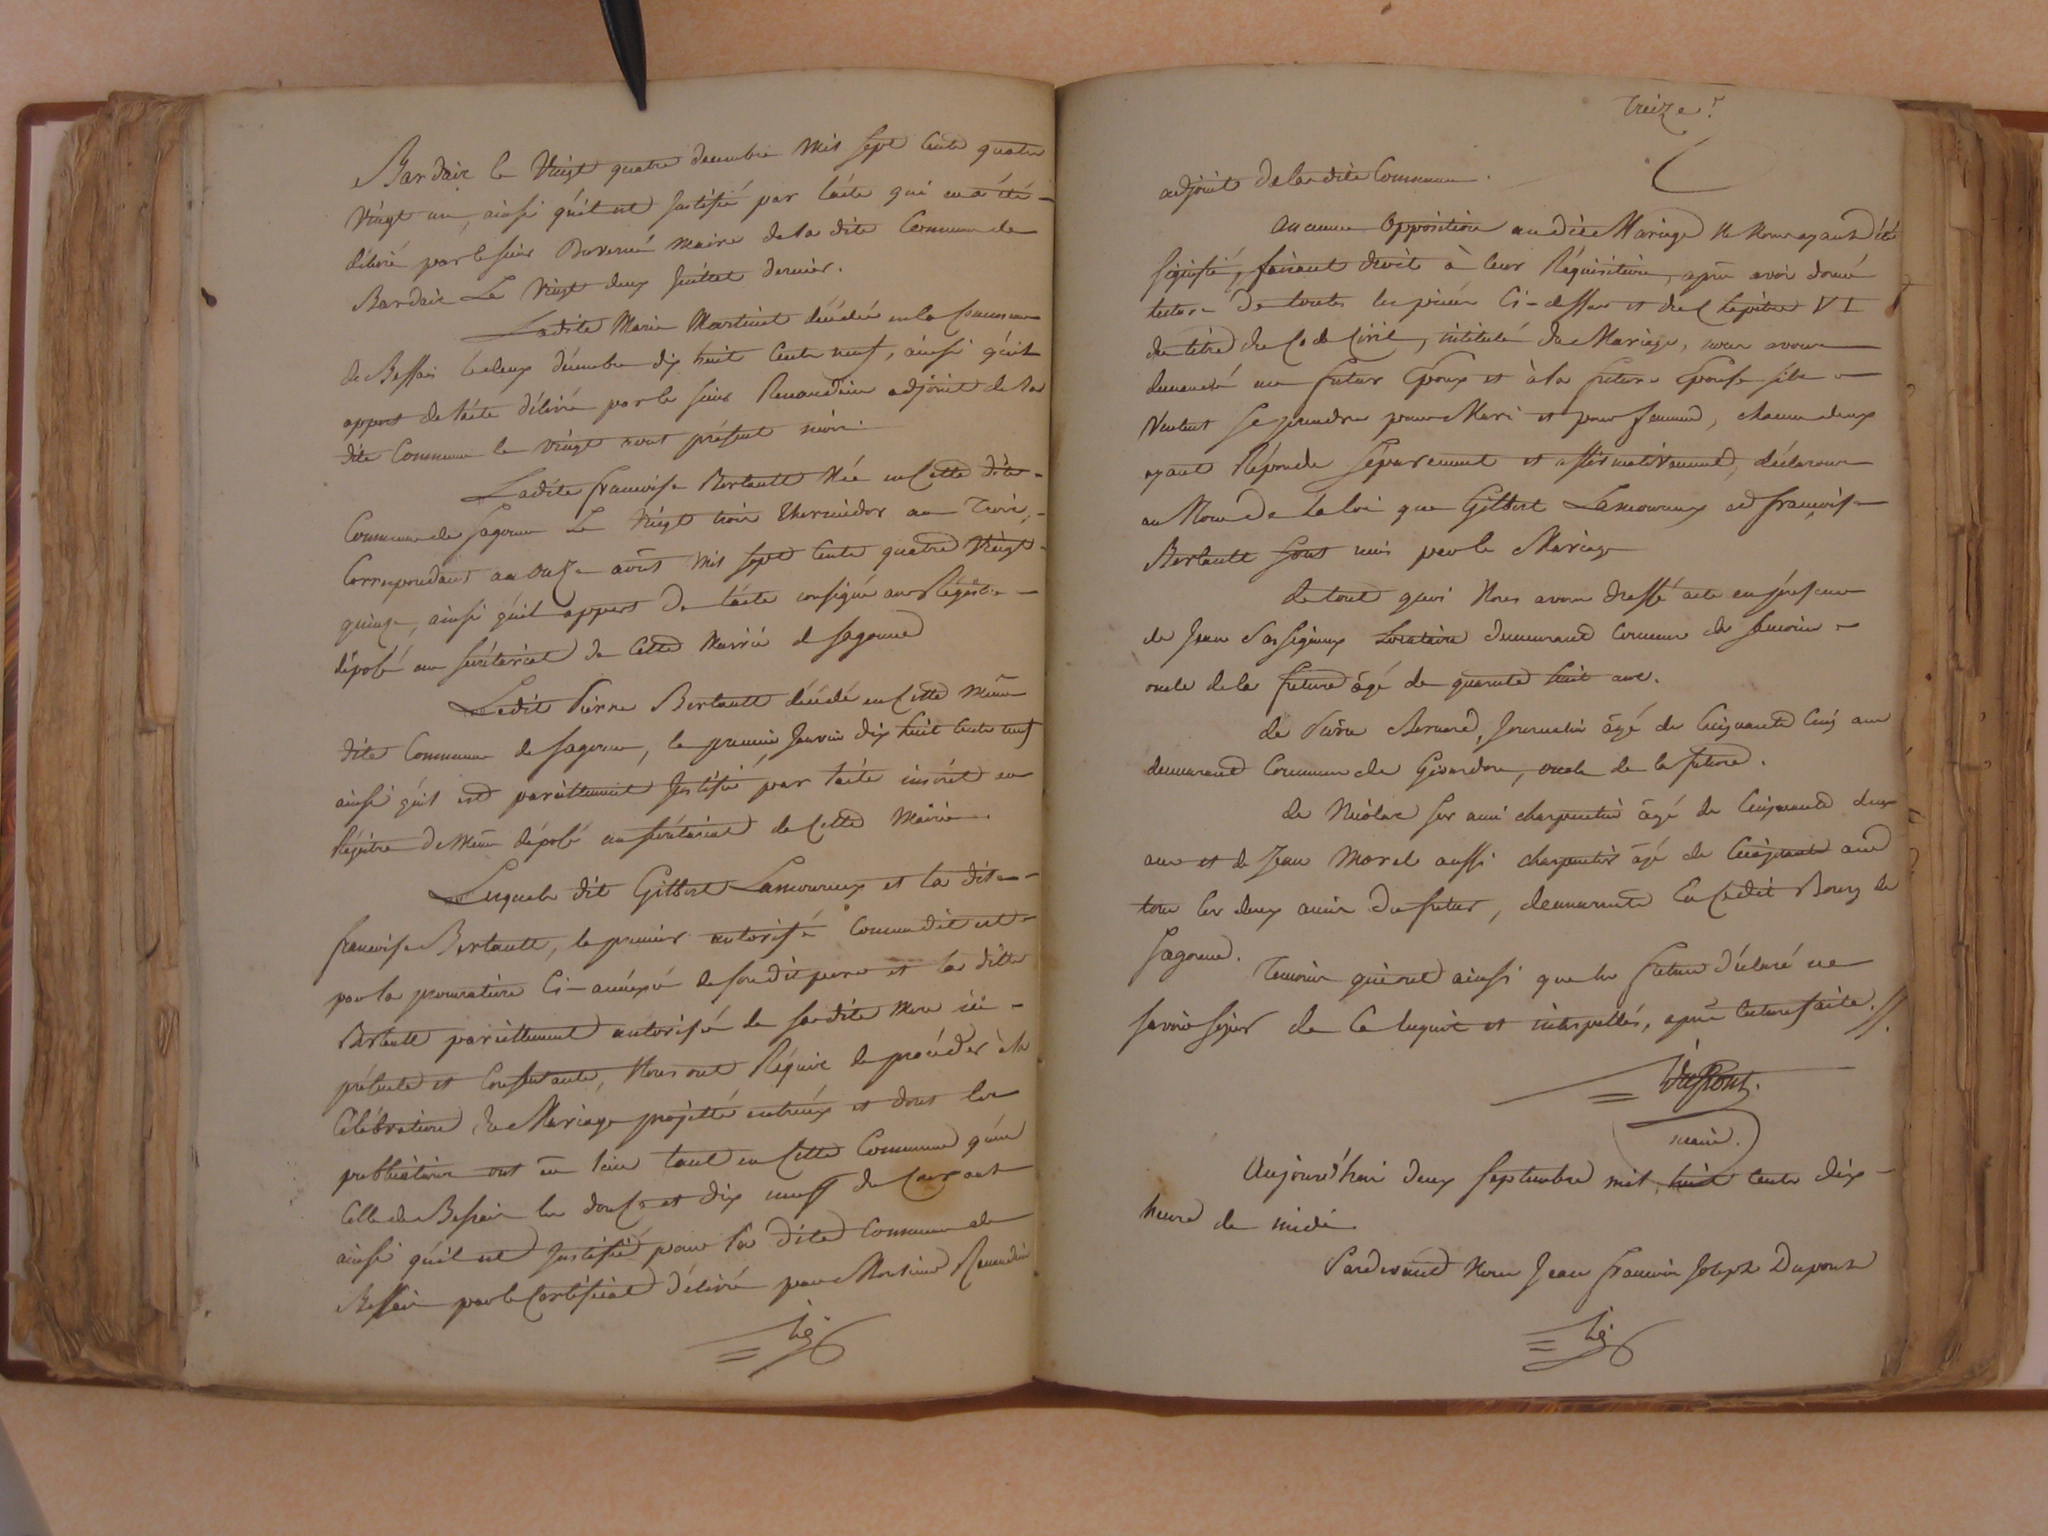 Bardais le Vingt quatre decembre Mil Sept Cents quatre
Vingt un, ainsi qu'il est Justifié par l'acte qui en a été
délivré par le sieur Duverné Maire de la dite Commune de
Bardais Le Vingt deux Juillet dernier.
Ladite Marie Martinet décédée en la Commune
de Bessais le deux décembre dix huit Cents neuf, ainsi qu'il
appert de l'acte délivré par le sieur Renaudin adjoint de la
dite Commune le Vingt aout présent mois.
Ladite françoise Bertault Née en Cette dite
Commune de Sagonne Le Vingt trois Thermidor an Trois,
Correspondant au Onze août Mil Sept Cents quatre Vingt
quinze, ainsi qu'il appert de l'acte consigné au Régistre
déposé au Secrétariat de Cette Mairie de Sagonne
Ledit Pierre Bertault décédé en Cette Même
dite Commune de Sagonne, le premier Janvier dix huit Cents neuf
ainsi qu'il est pareillement Justifié par l'acte inséré au
Régistre de Même déposé au Secrétariat de Cette Mairie.
Lesquels dit Gilbert Lamoureux et la dite
françoise Bertault, le premier autorisé Comme dit est
par la procuration Ci-annéxé de son dit pere et la ditte
Bertault pareillement autorisée de sa dite Mere ici
présente et Consentante, Nous ont Réquis de procéder à la
Célébration du Mariage projetté entr'eux et dont les
publications ont eu lieu tant en Cette Commune qu'en
Celle de Bessais les douze et dix neuf du Courant
ainsi qu'il est Justifié pour la dite Commune de
Bessais par le Certificat délivré par Monsieur Renaudin
Treize
adjoint de la dite Commune.
Aucune Opposition audit Mariage Ne Nous ayant été
signifié, faisant droit à leur Réquisition, après avoir donné
lecture de toutes les pièces Ci-dessus et du Chapitre VI
du titre du Code Civil, intitulé du Mariage, nous avons
demandé au futur Epoux et à la future Epouse s'ils
Veulent Se prendre pour Mari et pour femme, chacun deux
ayant Répondu Séparement et affirmativement, déclarons
au Nom de la loi que Gilbert Lamoureux et françoise
Bertault Sont unis par le Mariage
de tout quoi Nous avons dressé acte en présence
de Jean Locataire demeurant Commune de
oncle de la future âgé de quarante huit ans.
de Pierre Bernard, Journalier âgé de Cinquante Cinq ans
demeurant Commune de Givardon, oncle de la future.
de Nicolas charpentier âgé de Cinquante deux
ans et de Jean Morel aussi charpentier âgé de Cinquante ans
tous les deux amis du futur, demeurants En Cedit Bourg de
Sagonne.
Temoins qui ont ainsi que les futurs déclaré ne
savoir signer de Ce Enquis et interpellés, après lecture faite. //.
Dupont.
maire.
Aujourd'hui deux Septembre mil huit Cents dix
heure de midi
Pardevant Nous Jean François Joseph Dupont